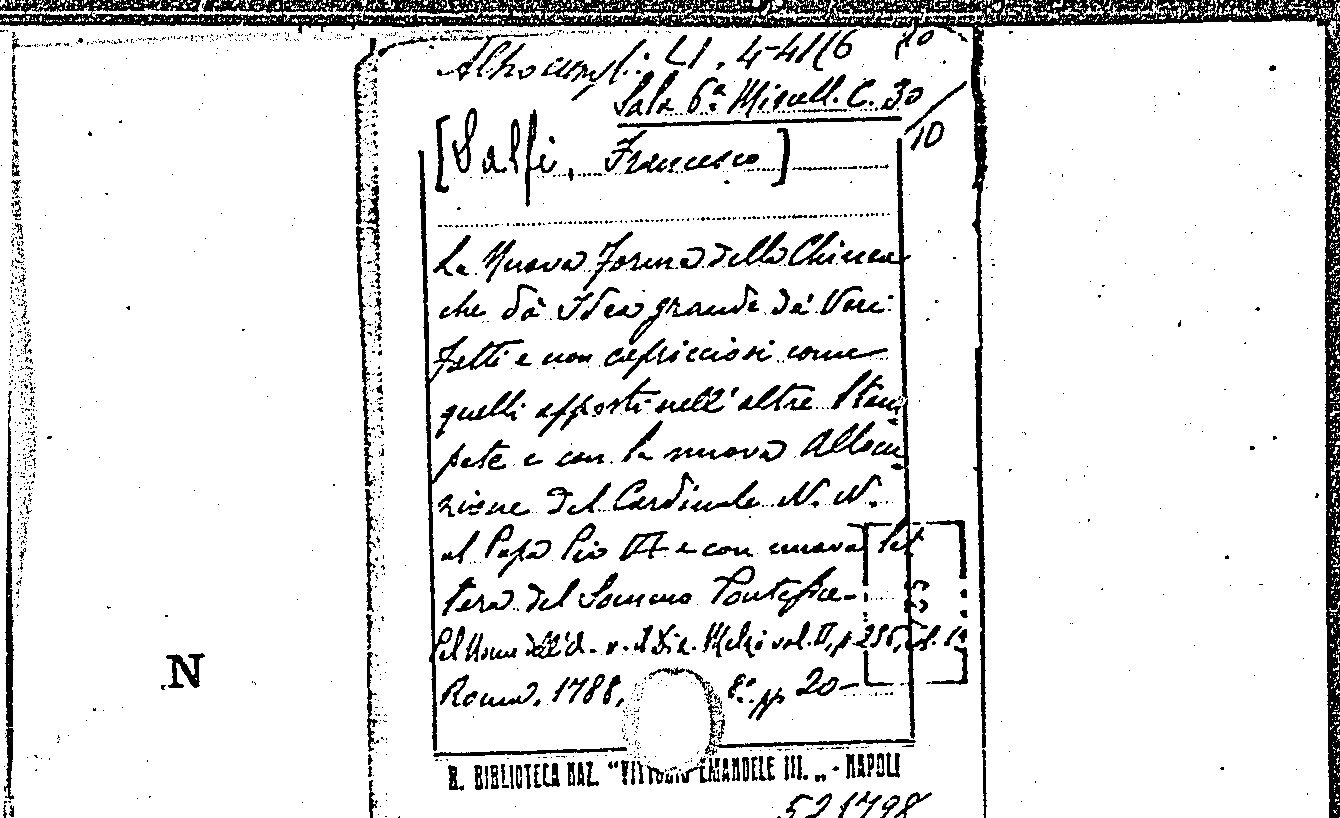 4-41(6 20
Sala 6ª Miscell. C. 30
/10
[Salfi, Francesco]
La Nuova Forma della Chinea
che dà Idea grande dè Veri
fatti e non capricciosi come
quelli apposti nell'altre Stam
pate e con la nuova Allocu
zione del Cardinale N. N.
al Papa Pio VI e con nuova Let
tera del Sommo Pontefice.
Pel Nome dell'A. v. il Diz. Melzi vol. II, p. 256, col. 1ª
Roma, 1788, 8º pp 20
N
R. BIBLIOTECA NAZ. "VITTORIO EMANUELE III." - NAPOLI
521798